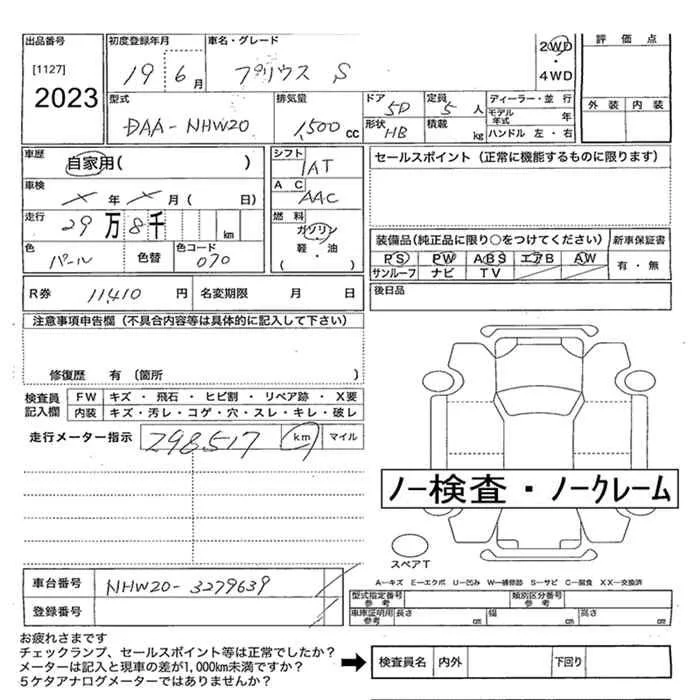 出品番号 初度登録年月 車名・グレード 評価点
[1127] 19 6月 プリウス S 2WD・4WD
2023 型式 排気量 ドア 5D 定員 5人 ディーラー・並行 外装 内装
DAA-NHW20 1,500cc 形状 HB 積載 kg モデル年式 年
ハンドル 左・右
車歴 自家用( ) シフト 1AT セールスポイント(正常に機能するものに限ります)
車検 ×年×月( 日) AC AAC
走行 29万8千 km 燃料 ガソリン・軽・油( )
装備品(純正品に限り○をつけてください) 新車保証書
色 パール 色替 色コード 070 PS PW ABS エアB AW 有・無
サンルーフ ナビ TV
R券 11,410円 名変期限 月 日 後日品
注意事項申告欄(不具合内容等は具体的に記入して下さい)
修復歴 有(箇所
検査員記入欄 FW キズ・飛石・ヒビ割・リペア跡・X要
内装 キズ・汚レ・コゲ・穴・スレ・キレ・破レ
走行メーター指示 298517 km マイル
ノー検査・ノークレーム
スペアT
A－キズ E－エクボ U－凹み W－補修跡 S－サビ C－腐食 XX－交換済
車台番号 NHW20-3279639 型式指定番号 参考 類別区分番号 参考
登録番号 車庫証明用 参考 長さ cm 幅 cm 高さ cm
お疲れさまです
チェックランプ、セールスポイント等は正常でしたか?
メーターは記入と現車の差が1,000km未満ですか?
5ケタアナログメーターではありませんか?
検査員名 内外 下回り